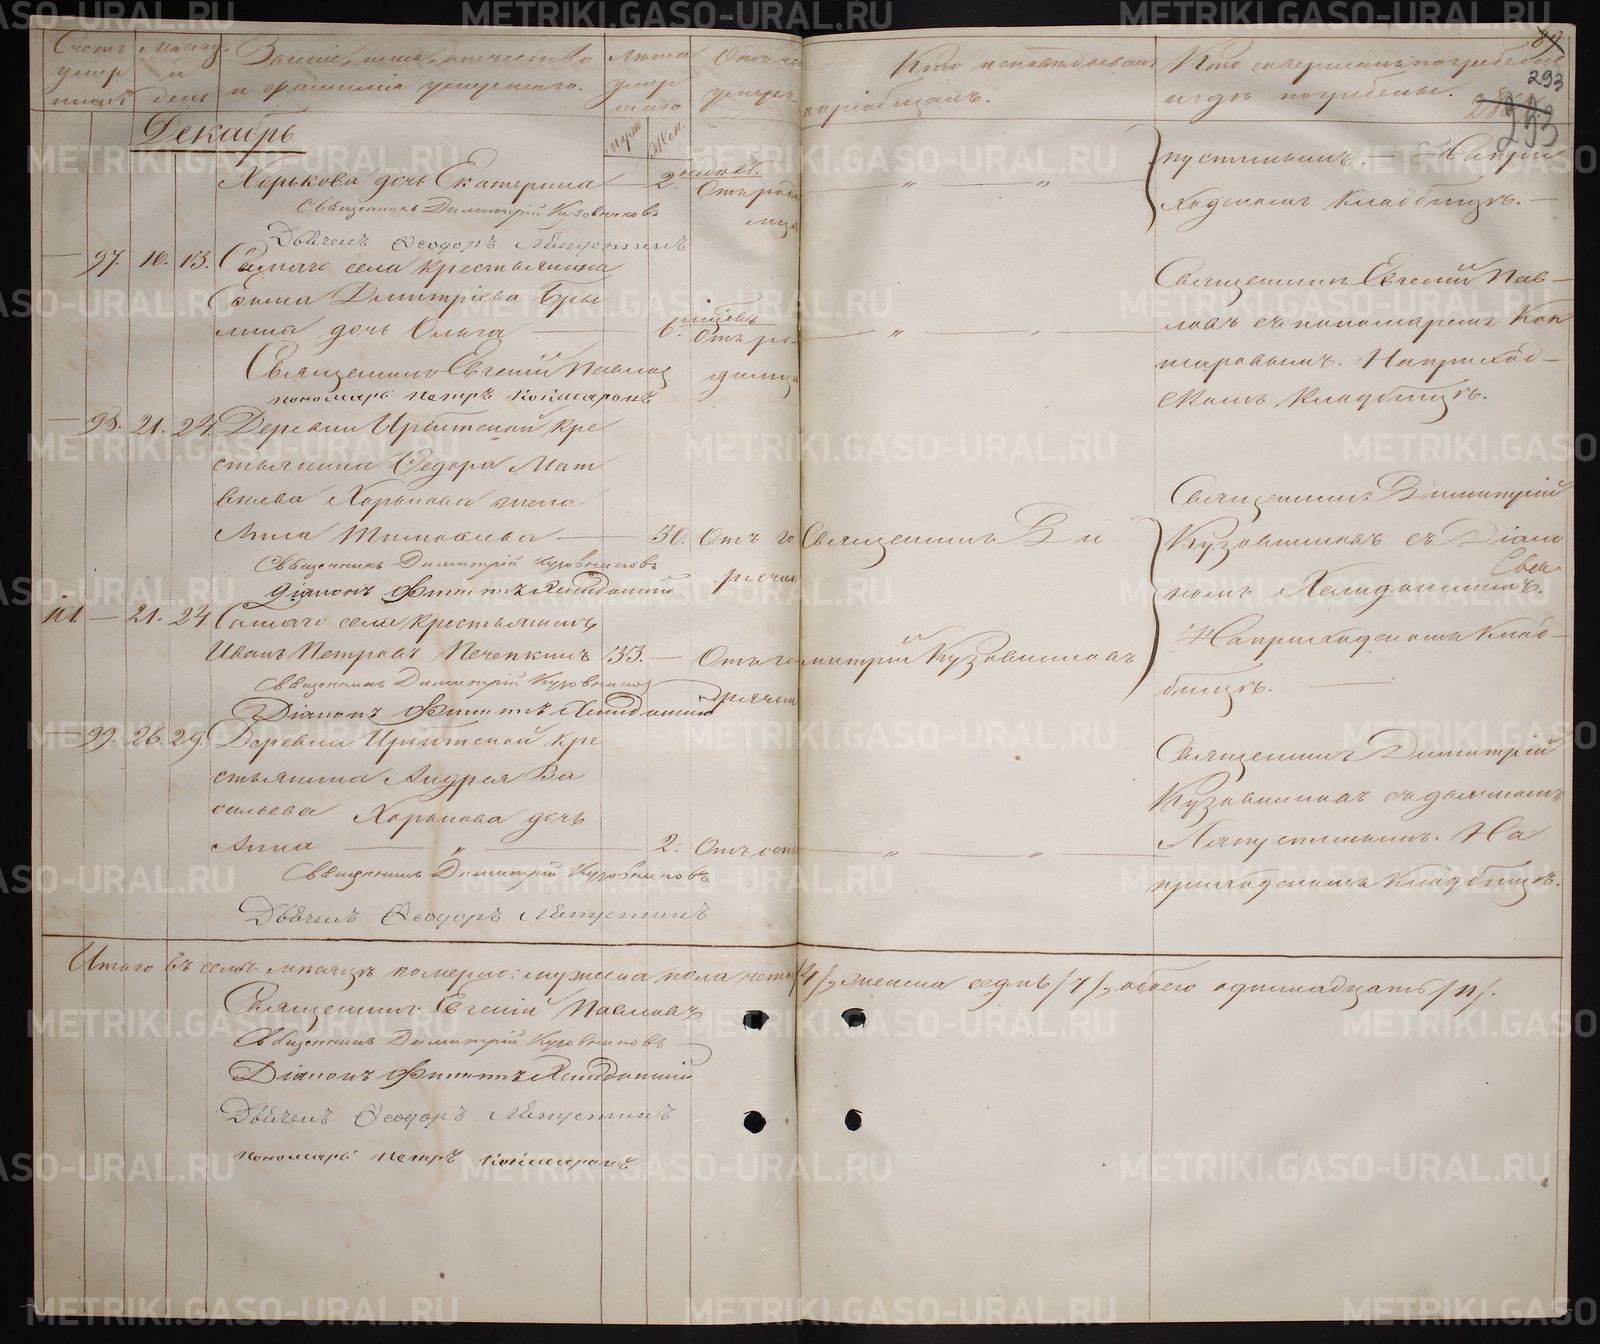 Счетъ умер шихъ
Месяцъ и день
Званіе, имя, отчество и фамилія умершаго.
Лета умер шаго
муж.
жен.
Отъ чего умеръ
Кто исповедывалъ и пріобщалъ.
Кто совершалъ погребеніе и где погребены.
89
293
293
Декабрь
Хорькова дочь Екатерина — 2. недел. Отъ роди
мца — " — " —
пустинымъ. — На при
ходскомъ кладбище. —
Священникъ Димитрій Кузовниковъ
Дьячекъ Ѳеодоръ Ляпустинъ
— 97. 10. 13. Самаго села крестьянина
Ефима Димитріева Бры
лина дочь Ольга — 6. месяцевъ Отъ ро-
димца — " — " —
Священникъ Евгеній Пав-
ловъ съ пономаремъ Кок
шаровымъ. На приход-
скомъ кладбище.
Священникъ Евгеній Павловъ
пономарь Петръ Кокшаровъ
— 98. 21. 24. Деревни Ирбитской кре
стьянина Ѳедора Мат
веева Хорькова жена
Анна Тимофеева — 30. Отъ го
рячки Священникъ Ди
Священникъ Димитрій
Кузовниковъ съ Діако
номъ Хелидонскимъ.
На приходскомъ клад-
бище. —
Священникъ Димитрій Кузовниковъ
Діаконъ Филиппъ Хелидонскій
101 — 21. 24. Самаго села крестьянинъ
Иванъ Петровъ Печенкинъ 33. — Отъ го
рячки митрій Кузовниковъ
Священникъ Димитрій Кузовниковъ
Діаконъ Филиппъ Хелидонскій
— 99. 26. 29. Деревни Ирбитской кре
стьянина Андрея Ва
сильева Хорькова дочь
Анна — " — 2. Отъ оспы — " — " —
Священникъ Димитрій
Кузовниковъ съ дьячкомъ
Ляпустинымъ. На
приходскомъ кладбище.
Священникъ Димитрій Кузовниковъ
Дьячекъ Ѳеодоръ Ляпустинъ
Итого въ семъ месяце померло: мужеска пола четыре /4/, женска седмь /7/, обоего одиннадцать /11/.
Священникъ Евгеній Павловъ
Священникъ Димитрій Кузовниковъ
Діаконъ Филиппъ Хелидонскій
Дьячекъ Ѳеодоръ Ляпустинъ
пономарь Петръ Кокшаровъ
METRIKI.GASO-URAL.RU